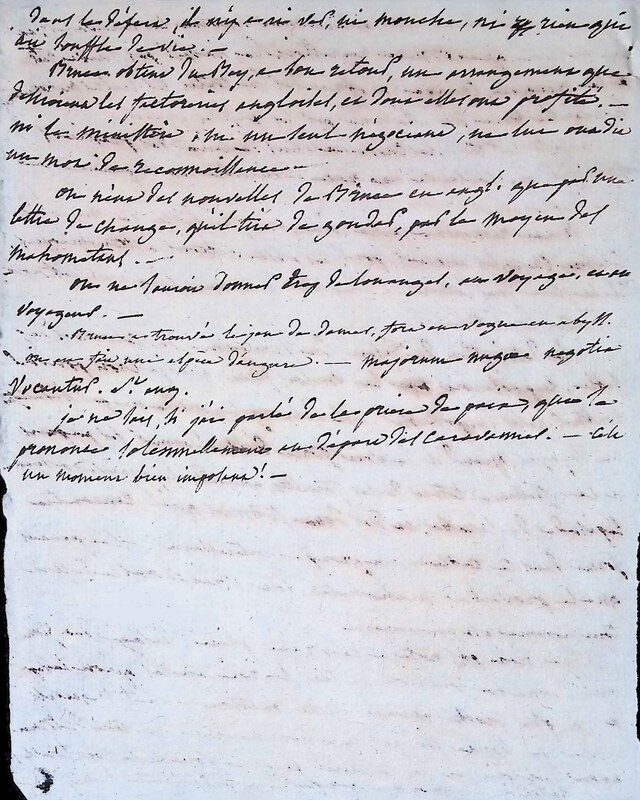 dans le désert, il n'y a ni ver, ni mouche, ni rien qui
au souffle de vie. —
Bruce obtint du Bey, a son retour, un arrangement que
les factoreries angloises, et dont elles ont profité. —
ni le ministère, ni un seul négociant, ne lui ont dit
un mot de reconnoissance. —
on n'eut des nouvelles de Bruce en angl. que par une
lettre de change, qu'il tira de gondar, par le moyen des
mahometans. —
on ne sauroit donner trop de louanges, au voyage, et au
voyageur. —
Bruce a trouvé le jeu de dames, fort en vogue en abyss.
on en fait une espèce d'augure. — majorum nugae negotia
vocantur. St. aug.
je ne sais, si j'ai parlé de la prière de paix, qui se
prononce solemnellement au départ des caravannes. — c'est
un moment bien imposant! —